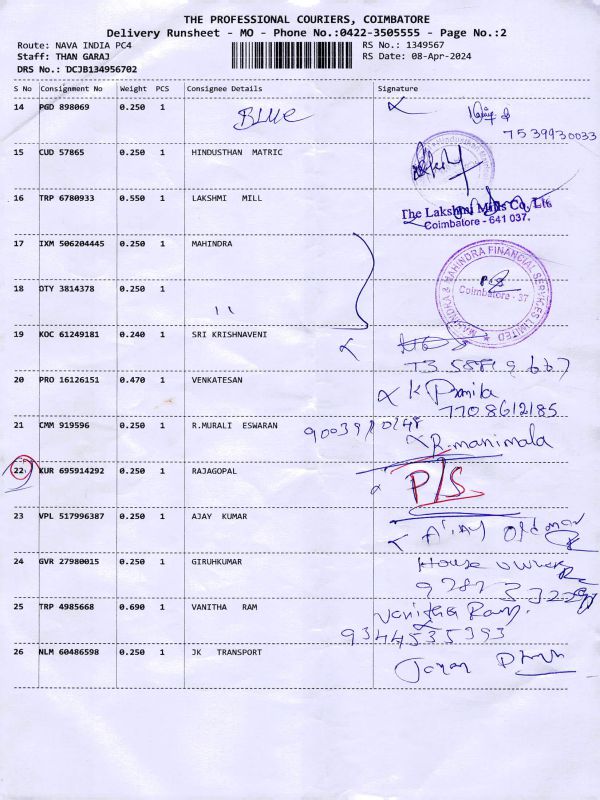 THE PROFESSIONAL COURIERS, COIMBATORE
Delivery Runsheet - MO - Phone No.:0422-3505555 - Page No.:2
Route: NAVA INDIA PC4
RS No.: 1349567
Staff: THAN GARAJ
RS Date: 08-Apr-2024
DRS No.: DCJB134956702
S No Consignment No Weight PCS Consignee Details Signature
14 PGD 898069 0.250 1 BLUE
7539930033
15 CUD 57865 0.250 1 HINDUSTHAN MATRIC
16 TRP 6780933 0.550 1 LAKSHMI MILL
The Lakshmi Mills Co, Ltd
Coimbatore - 641 037.
17 IXM 506204445 0.250 1 MAHINDRA
MAHINDRA & MAHINDRA FINANCIAL SERVICES LIMITED
Coimbatore - 37
18 DTY 3814378 0.250 1 ''
19 KOC 61249181 0.240 1 SRI KRISHNAVENI
20 PRO 16126151 0.470 1 VENKATESAN
K
7708612185
21 CMM 919596 0.250 1 R.MURALI ESWARAN
R.manimala
22 KUR 695914292 0.250 1 RAJAGOPAL P/S
23 VPL 517996387 0.250 1 AJAY KUMAR
24 GVR 27980015 0.250 1 GIRUHKUMAR House owner
25 TRP 4985668 0.690 1 VANITHA RAM Vanitha Ram
9344535393
26 NLM 60486598 0.250 1 JK TRANSPORT